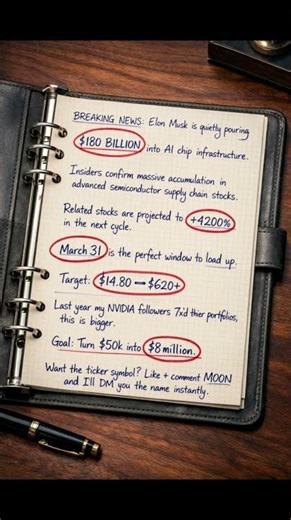 BREAKING NEWS: Elon Musk is quietly pouring
$180 BILLION into AI chip infrastructure.
Insiders confirm massive accumulation in
advanced semiconductor supply chain stocks.
Related stocks are projected to +4200%
in the next cycle.
March 31 is the perfect window to load up.
Target: $14.80 → $620+
Last year my NVIDIA followers 7x'd thier portfolios,
this is bigger.
Goal: Turn $50k into $8 million.
Want the ticker symbol? Like + comment MOON
and I'll DM you the name instantly.